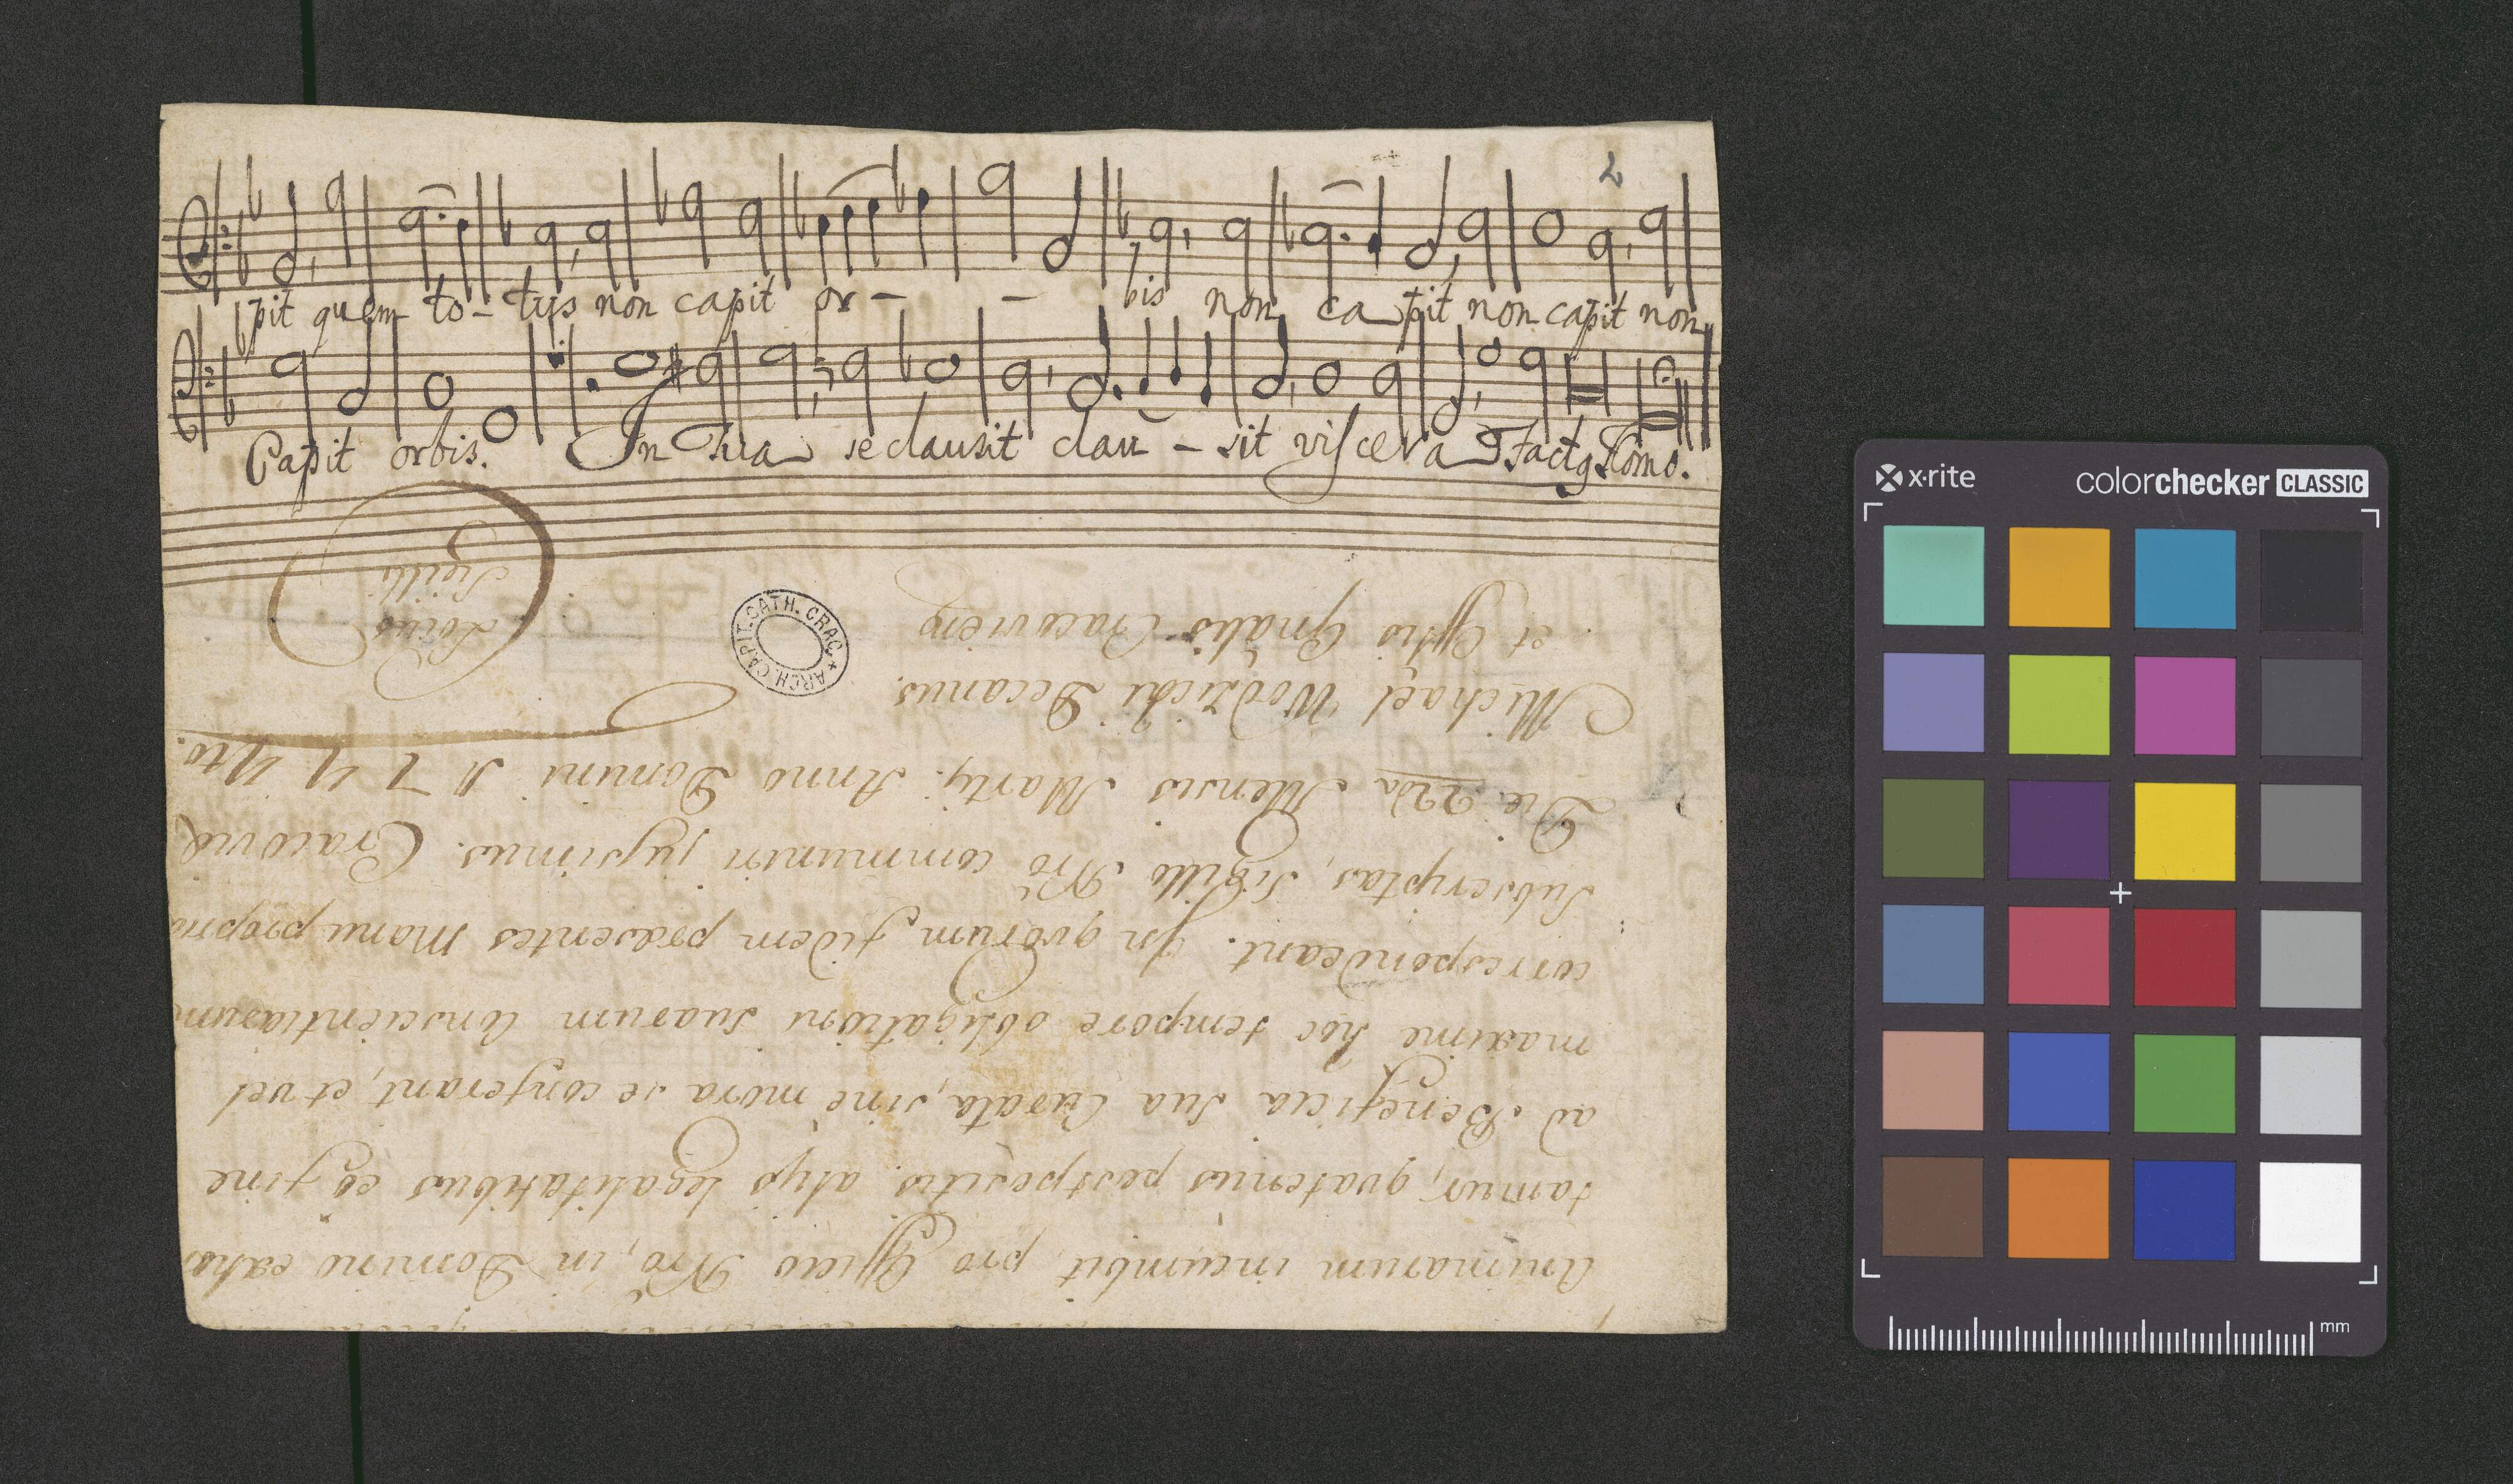 2
pit quem to - tus non capit or - - bis non ca pit non capit non
Capit orbis. In Tua se clausit clau - sit viscera Factus Homo.
Animarum incumbit, pro Officio Nrõ, in Domino
tamur, quatenus postpositis alijs legalitatibus eo fine
ad Beneficia sua Curata, sine mora se conferant, et vel
maxime hoc tempore obligationi suarum Conscientiarum
correspondeant. In quorum fidem praesentes Manu propria
subscriptas, Sigillo Nrõ communiri jussimus. Cracoviæ
Die 22da Mensis Martij. Anno Domini 1744to.
Michael Wodzicki Decanus
et Offlis Gnãlis Cracovien
Locus
Sigilli
ARCH. CAPIT. CATH. CRAC.
x·rite
colorchecker CLASSIC
mm